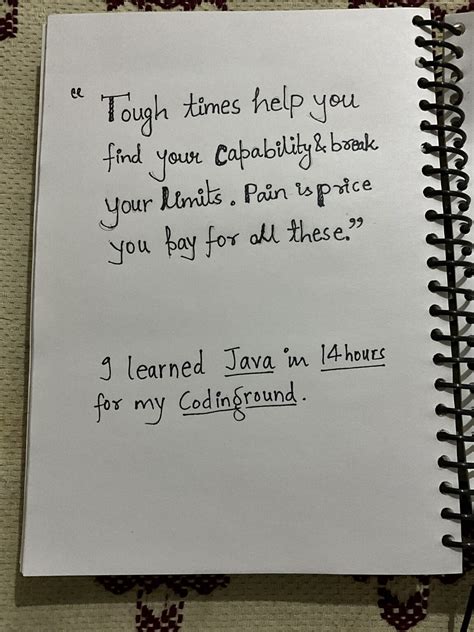 “Tough times help you
find your Capability & break
your limits. Pain is price
you pay for all these.”
I learned Java in 14hours
for my Codinground.